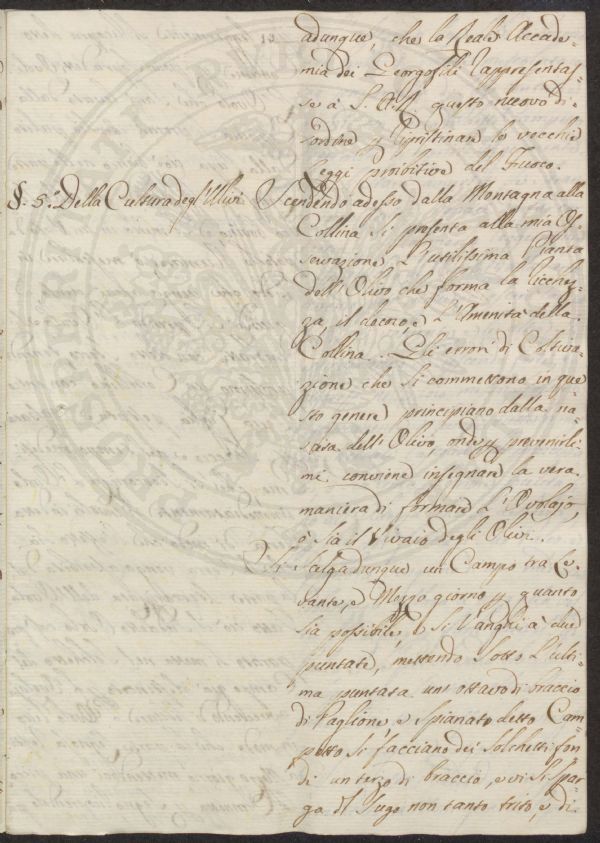 adunque, che la Reale Accade-
mia dei Georgofili rappresentas-
se a S. A. R. questo nuovo di-
sordine p ripristinare le vecchie
Leggi proibitive del Fuoco.
§. 5.° Della Cultura degl'Ulivi Scendendo adesso dalla Montagna alla
Collina si presenta alla mia Os-
servazione L'utilissima Pianta
dell'Olivo che forma la ricchez-
za, il decoro, e L'Amenità della
Collina. Gli errori di Coltiva-
zione che si commettono in que-
sto genere principiano dalla na-
scita dell'Olivo, onde p prevenirli
mi conviene insegnare la vera
maniera di formare L'Ovolajo,
o sia il Vivaio degli Olivi.
Si scelga dunque un Campo tra Le-
vante, e Mezzo giorno p quanto
sia possibile, e si vanghi a due
puntate, mettendo sotto L'ulti-
ma puntata un ottavo di braccio
di Paglione, e spianato detto Cam-
petto si facciano dei solchetti fon-
di un terzo di braccio, e vi si spar-
ga il Sugo non tanto trito, e di-